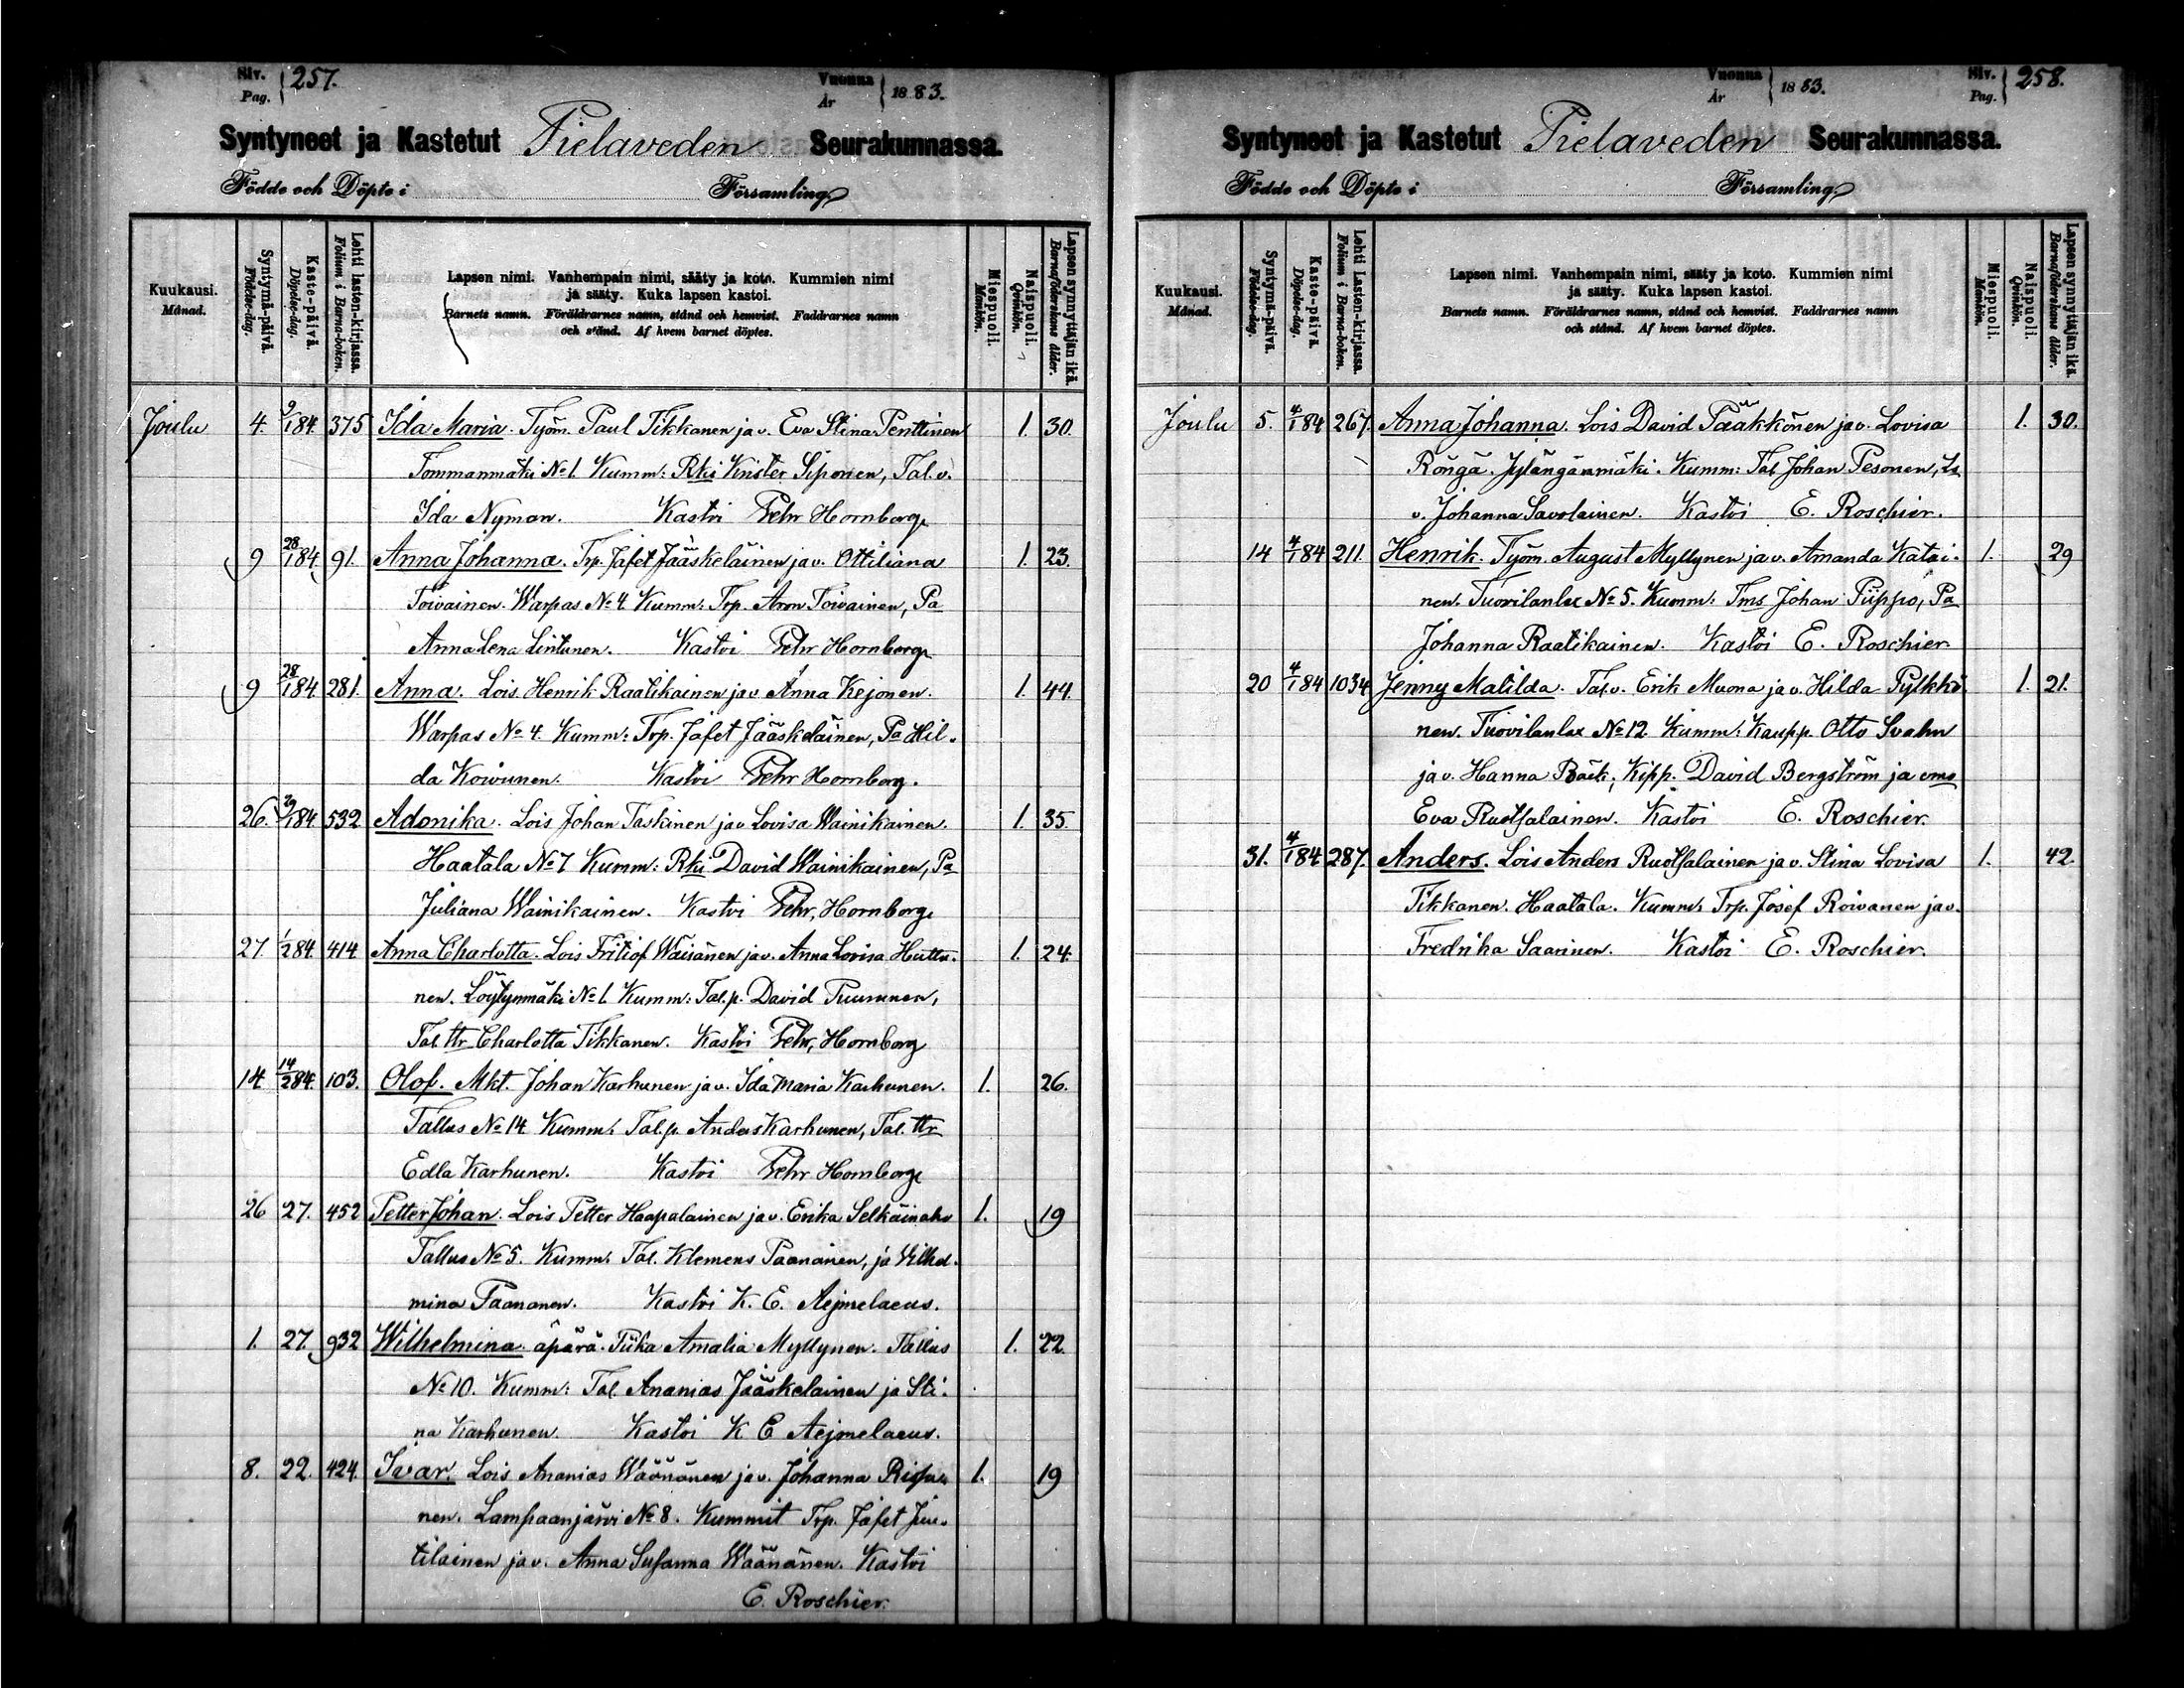 Siv. Pag. 257. Vuonna År 1883.
Syntyneet ja Kastetut Pielaveden Seurakunnassa.
Födde och Döpte i Församling
Kuukausi. Månad. Syntymä-päivä. Födelse-dag. Kaste-päivä. Döpelse-dag. Lehti lasten-kirjassa. Folium i Barna-boken. Lapsen nimi. Vanhempain nimi, sääty ja koto. Kummien nimi ja sääty. Kuka lapsen kastoi. Barnets namn. Föräldrarnes namn, stånd och hemvist. Faddrarnes namn och stånd. Af hvem barnet döptes. Miespuoli. Mankön. Naispuoli. Qvinkön. Lapsen synnyttäjän ikä. Barnaföderskans ålder.
Joulu 4. 9/1 84. 375 Ida Maria. Työm. Paul Tikkanen ja v. Eva Stina Penttinen 1. 30.
Tommanmäki No 1. Kumm: Rki Krister Siponen, Tal. v.
Ida Nyman. Kastoi Pehr Hornborg
9 28/1 84 91. Anna Johanna. Trp. Jafet Jääskeläinen ja v. Ottiliana 1. 23.
Toivainen. Warpas No 4. Kumm: Trp. Aron Toivainen, Pa
Anna Lena Lintunen. Kastoi Pehr Hornborg
9 28/1 84. 281. Anna. Lois. Henrik Raatikainen ja v. Anna Kejonen. 1. 44.
Warpas No 4. Kumm: Trp. Jafet Jääskeläinen, Pa Hil-
da Koivunen. Kastoi Pehr Hornborg.
26. 29/1 84. 532 Adonika. Lois Johan Taskinen ja v. Lovisa Wainikainen. 1. 35.
Haatala No 7 Kumm: Rki David Wainikainen, Pa
Juliana Wainikainen. Kastoi Pehr Hornborg
27. 1/2 84. 414 Anna Charlotta. Lois Fritiof Wäisänen ja v. Anna Lovisa Huttu- 1. 24.
nen. Löytynmäki No 1. Kumm: Tal. p. David Puumnen,
Tal. ttr Charlotta Tikkanen. Kastoi Pehr Hornborg
14 14/2 84. 103. Olof. Mkt. Johan Karhunen ja v. Ida Maria Karhunen. 1. 26.
Tallus No 14 Kumm: Tal. p. Anders Karhunen, Tal. ttr
Edla Karhunen. Kastoi Pehr Hornborg
26 27. 452 Petter Johan. Lois Petter Haapalainen ja v. Erika Selkäinaho 1. 19
Tallus No 5. Kumm: Tal. Klemens Paananen, ja Vilhel-
mina Paananen. Kastoi K. E. Aejmelaeus.
1. 27. 932 Wilhelmina. äpärä. Piika Amalia Myllynen. Tallus 1. 22.
No 10. Kumm: Tal. Ananias Jääskelainen ja Sti-
na Karhunen. Kastoi K E Aejmelaeus.
8. 22. 424. Ivar. Lois Ananias Wäänänen ja v. Johanna 1. 19
nen. Lampaanjärvi No 8. Kummit Trp. Jafet Juu-
tilainen ja v. Anna Susanna Wäänänen. Kastoi
E. Roschier.
Vuonna År 1883. Siv. Pag. 258.
Syntyneet ja Kastetut Pielaveden Seurakunnassa.
Födde och Döpte i Församling.
Kuukausi. Månad. Syntymä-päivä. Födelse-dag. Kaste-päivä. Döpelse-dag. Lehti Lasten-kirjassa. Folium i Barna-boken. Lapsen nimi. Vanhempain nimi, sääty ja koto. Kummien nimi ja sääty. Kuka lapsen kastoi. Barnets namn. Föräldrarnes namn, stånd och hemvist. Faddrarnes namn och stånd. Af hvem barnet döptes. Miespuoli. Mankön. Naispuoli. Qvinkön. Lapsen synnyttäjän ikä. Barnaföderskans ålder.
Joulu 5. 4/1 84 267. Anna Johanna. Lois David Pääkkönen ja v. Lovisa 1. 30.
Röngä. Jylängänmäki. Kumm: Tal. Johan Pesonen, Ls
v. Johanna Savolainen. Kastoi E. Roschier.
14 4/1 84 211. Henrik. Työm. August Myllynen ja v. Amanda Katai- 1. 29
nen. Tuovilanlax No 5. Kumm: Tms Johan Piippo, Pa
Johanna Raatikainen. Kastoi E. Roschier.
20 4/1 84 1034 Jenny Matilda. Tal. v. Erik Muona ja v. Hilda Pylkkö- 1. 21.
nen. Tuovilanlax No 12. Kumm: Kaupp. Otto Svahn
ja v. Hanna Bäck; Kipp. David Bergström ja ems
Eva Ruotsalainen. Kastoi E. Roschier.
31. 4/1 84 287. Anders. Lois Anders Ruotsalainen ja v. Stina Lovisa 1. 42.
Tikkanen. Haatala. Kumm: Trp. Josef Roivanen ja v.
Fredrika Saarinen. Kastoi E. Roschier.